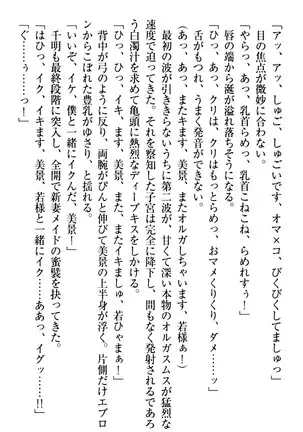 「アッ、アッ、しゅご、しゅごいです、オマ×コ、びくびくしてましゅっ」
目の焦点が微妙に合わない。
「やらっ、あっ、乳首らめっ、乳首こねこね、らめれすぅ！」
唇の端から涎が溢れ落ちそうになる。
「ひっ、あっ、クリは、クリはもっとらめっ、おマメくりくり、ダメ……ッ」
舌がもつれ、うまく発音ができない。
（あっ、あっ、またキます、美景、またオルガしちゃいます、若様ぁ！）
最初の波が引ききらないうちに第二波が、甘くて深い本物のオルガスムスが猛烈な
速度で迫ってきた。それを察知した子宮は完全に降下し、間もなく発射されるであろ
う白濁汁を求めて亀頭に熱烈なディープキスをしかける。
「ひっ、ひっ、イキ、ます、美景、また、またイキましゅ、若ひゃまぁ！」
背中が弓のように反り、両腕がぴんと伸びて美景の上半身が浮く。片側だけエプロ
ンからこぼれた豊乳がゆさり、と揺れる。
「いい、イケ、僕と一緒にイクんだ、美景！」
千明も最終段階に突入し、全開で新妻メイドの蜜襞を抉ってきた。
「はひっ、イク、イキます、美景、若様と一緒にイク……ああっ、イグッ……!!」
「ぐ……ぅぅ……っ！」